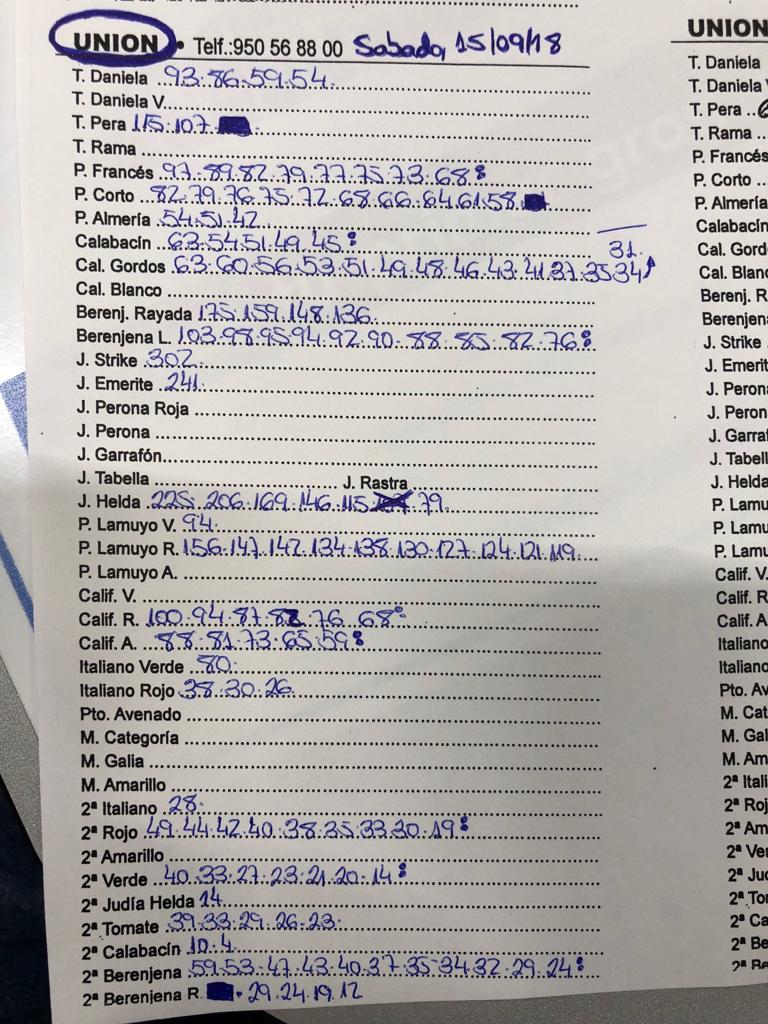 UNION • Telf.:950 56 88 00 Sabado, 15/09/18
T. Daniela 93.86.59.54.
T. Daniela V.
T. Pera 115.107.
T. Rama
P. Francés 97.89.82.79.77.75.73.68:
P. Corto 82.79.76.75.72.68.66.64.61.58.
P. Almería 54.51.42
Calabacín 63.54.51.49.45:
31.
Cal. Gordos 63.60.56.53.51.49.48.46.43.41.37.35.34
Cal. Blanco
Berenj. Rayada 175.159.148.136
Berenjena L. 103.98.95.94.92.90.88.85.82.76:
J. Strike 302
J. Emerite 241.
J. Perona Roja
J. Perona
J. Garrafón
J. Tabella J. Rastra
J. Helda 225.206.169.146.115 79
P. Lamuyo V. 94.
P. Lamuyo R. 156.147.142.134.138.130.127.124.121.119
P. Lamuyo A.
Calif. V.
Calif. R. 100.94.87.82.76.68:
Calif. A. 88.81.73.65.59:
Italiano Verde 80.
Italiano Rojo 38.30.26
Pto. Avenado
M. Categoría
M. Galia
M. Amarillo
2ª Italiano 28.
2ª Rojo 49.44.42.40.38.35.33.30.19:
2ª Amarillo
2ª Verde 40.33.27.23.21.20.14:
2ª Judía Helda 14
2ª Tomate 39.33.29.26.23.
2ª Calabacín 10.4
2ª Berenjena 59.53.47.43.40.37.35.34.32.29.24:
2ª Berenjena R. 29.24.19.12
UNION
T. Daniela
T. Daniela
T. Pera
T. Rama
P. Francés
P. Corto
P. Almería
Calabacín
Cal. Gord
Cal. Blanc
Berenj. R
Berenjena
J. Strike
J. Emerit
J. Perona
J. Peron
J. Garraf
J. Tabell
J. Helda
P. Lamu
P. Lamu
P. Lamu
Calif. V.
Calif. R
Calif. A
Italiano
Italiano
Pto. Av
M. Cat
M. Gal
M. Am
2ª Itali
2ª Roj
2ª Am
2ª Ver
2ª Jud
2ª To
2ª Ca
2ª Be
2ª Be